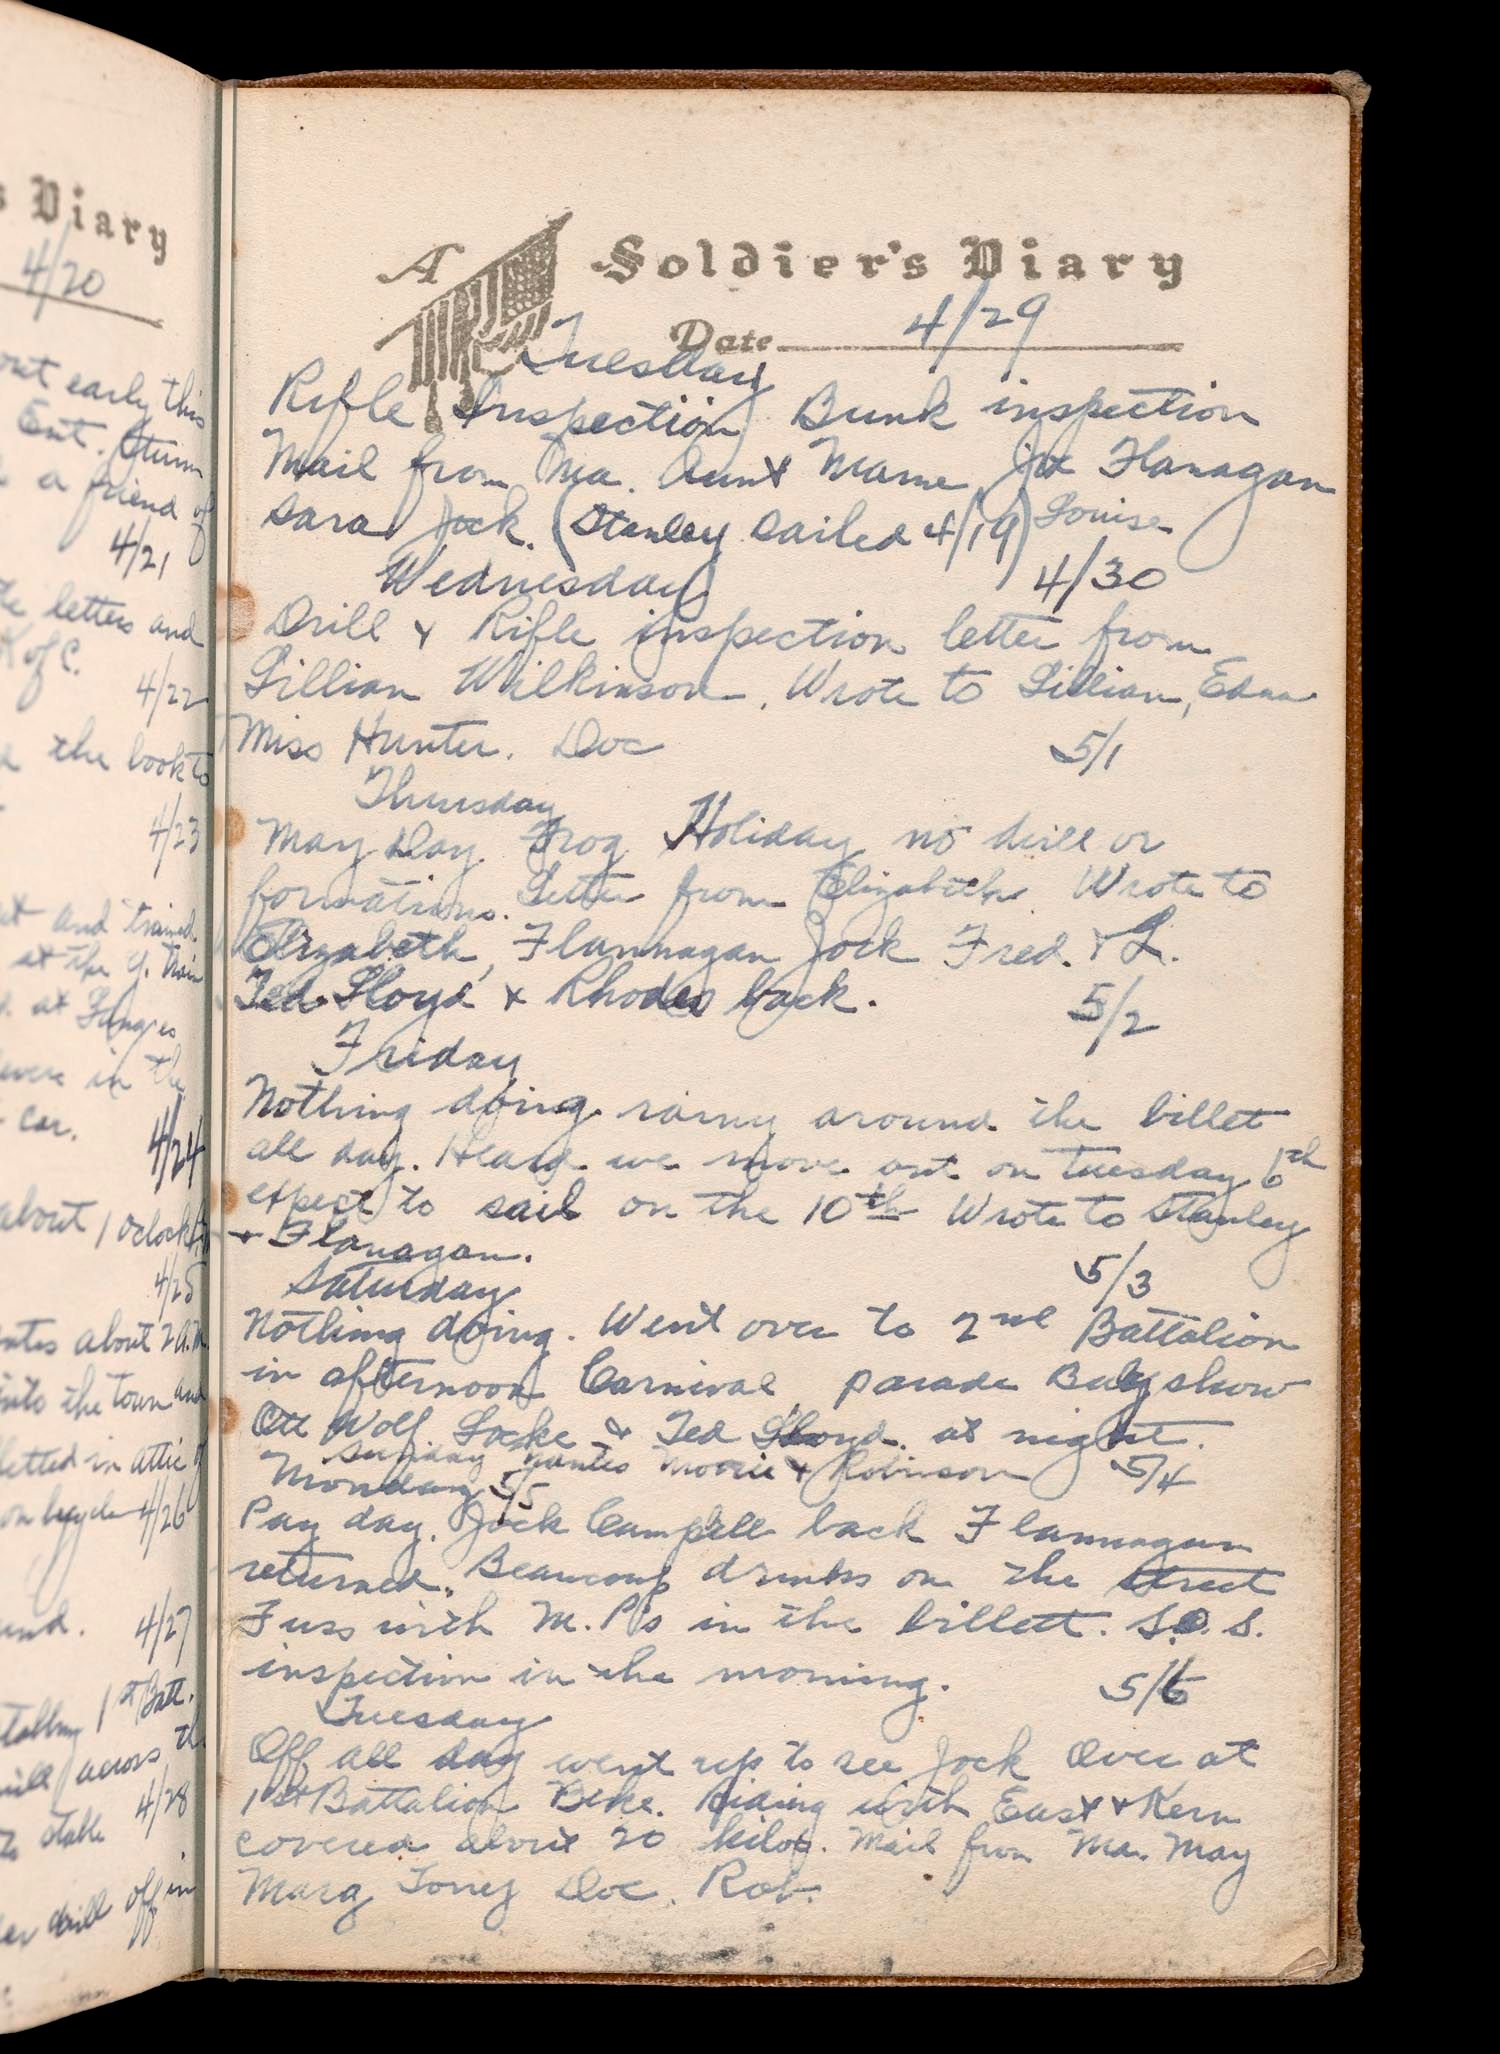 s Diary
4/20
out early this
Ent. Sturm
a friend of
4/21
the letters and
K of C.
4/22
the book to
4/23
and trained
at the Y. train
at
were in the
car.
4/24
about 1 oclock
4/25
about 2 A.M.
into the town and
billetted in attic of
on bicycle 4/26
4/27
1st Batt.
drill across the
4/28
to stable
drill off in
A Soldier's Diary
Date 4/29
Tuesday
Rifle Inspection Bunk inspection
Mail from Ma. Aunt Mame Joe Flanagan
Sara Jock. (Stanley sailed 4/19) Louise
Wednesday 4/30
Drill & Rifle inspection letter from
Lillian Wilkinson. Wrote to Lillian, Edna
Miss Hunter. Doc 5/1
Thursday
May Day Frog Holiday no drill or
formations. Letter from Elizabeth Wrote to
Elizabeth, Flannagan Jock Fred. & L.
Ted Lloyd & Rhodes back. 5/2
Friday
Nothing doing rainy around the billet
all day. Heard we move out on Tuesday 6th
expect to sail on the 10th Wrote to Stanley
& Flanagan.
Saturday 5/3
Nothing doing. Went over to 2nd Battalion
in afternoon Carnival parade Baby show
Ott Wolf Locke & Ted Lloyd. at night.
Sunday Nantes Moorie & Robinson 5/4
Monday 5/5
Pay day. Jock Campbell back Flannagan
returned. Beaucoup drunks on the street
Fuss with M.P.'s in the billett. S.O.S.
inspection in the morning. 5/6
Tuesday
Off all day went up to see Jock Over at
1st Battalion Bike. Riding with East & Kern
covered about 20 kilos. Mail from Ma. May
Marg Torrey Doc. Rob.